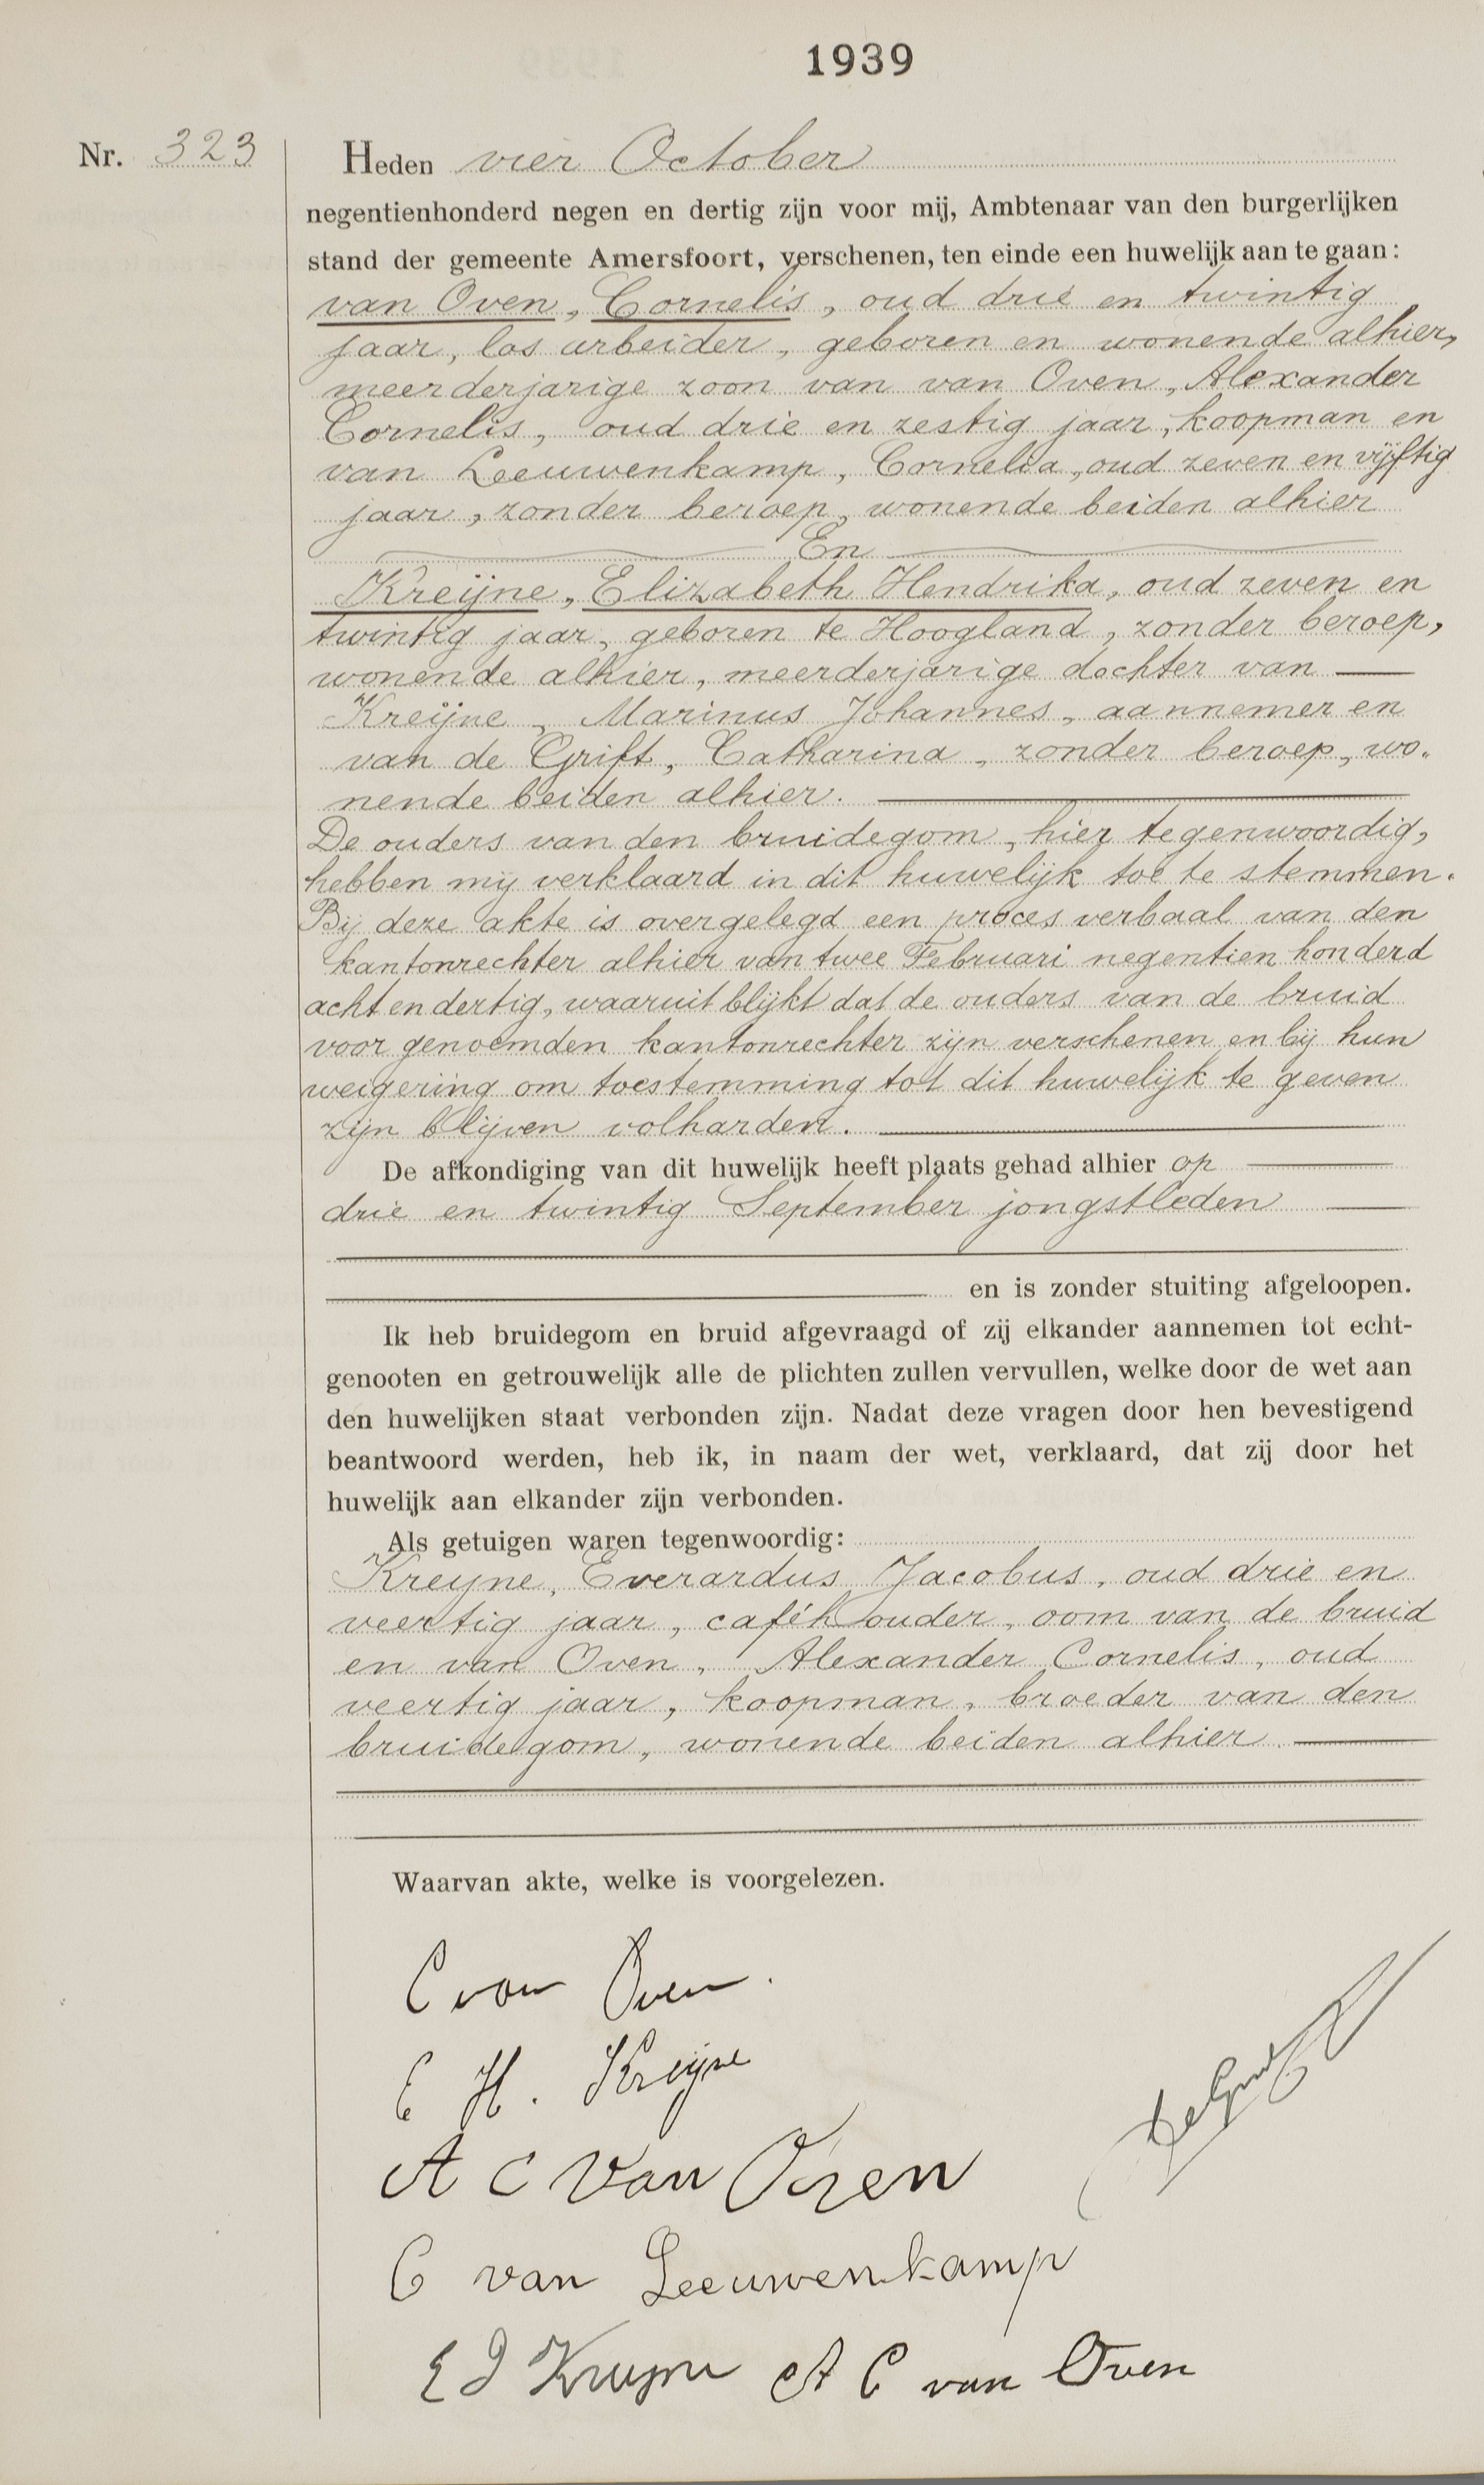 1939
Nr. 323
Heden vier October
negentienhonderd negen en dertig zijn voor mij, Ambtenaar van den burgerlijken
stand der gemeente Amersfoort, verschenen, ten einde een huwelijk aan te gaan:
van Oven, Cornelis, oud drie en twintig
jaar, los arbeider, geboren en wonende alhier,
meerderjarige zoon van van Oven, Alexander
Cornelis, oud drie en zestig jaar, koopman en
van Leeuwenkamp, Cornelia, oud zeven en vijftig
jaar, zonder beroep, wonende beiden alhier
En
Kreijne, Elizabeth Hendrika, oud zeven en
twintig jaar, geboren te Hoogland, zonder beroep,
wonende alhier, meerderjarige dochter van
Kreijne, Marinus Johannes, aannemer en
van de Grift, Catharina, zonder beroep, wo-
nende beiden alhier.
De ouders van den bruidegom, hier tegenwoordig,
hebben mij verklaard in dit huwelijk toe te stemmen.
Bij deze akte is overgelegd een proces verbaal van den
kantonrechter alhier van twee Februari negentien honderd
acht en dertig, waaruit blijkt dat de ouders van de bruid
voor genoemden kantonrechter zijn verschenen en bij hun
weigering om toestemming tot dit huwelijk te geven
zijn blijven volharden.
De afkondiging van dit huwelijk heeft plaats gehad alhier op
drie en twintig September jongstleden
en is zonder stuiting afgeloopen.
Ik heb bruidegom en bruid afgevraagd of zij elkander aannemen tot echt-
genooten en getrouwelijk alle de plichten zullen vervullen, welke door de wet aan
den huwelijken staat verbonden zijn. Nadat deze vragen door hen bevestigend
beantwoord werden, heb ik, in naam der wet, verklaard, dat zij door het
huwelijk aan elkander zijn verbonden.
Als getuigen waren tegenwoordig:
Kreyne, Everardus Jacobus, oud drie en
veertig jaar, caféhouder, oom van de bruid
en van Oven, Alexander Cornelis, oud
veertig jaar, koopman, broeder van den
bruidegom, wonende beiden alhier
Waarvan akte, welke is voorgelezen.
C van Oven.
E H. Kreijne
A C van Oven
C van Leeuwenkamp
E J Kreyne A C van Oven